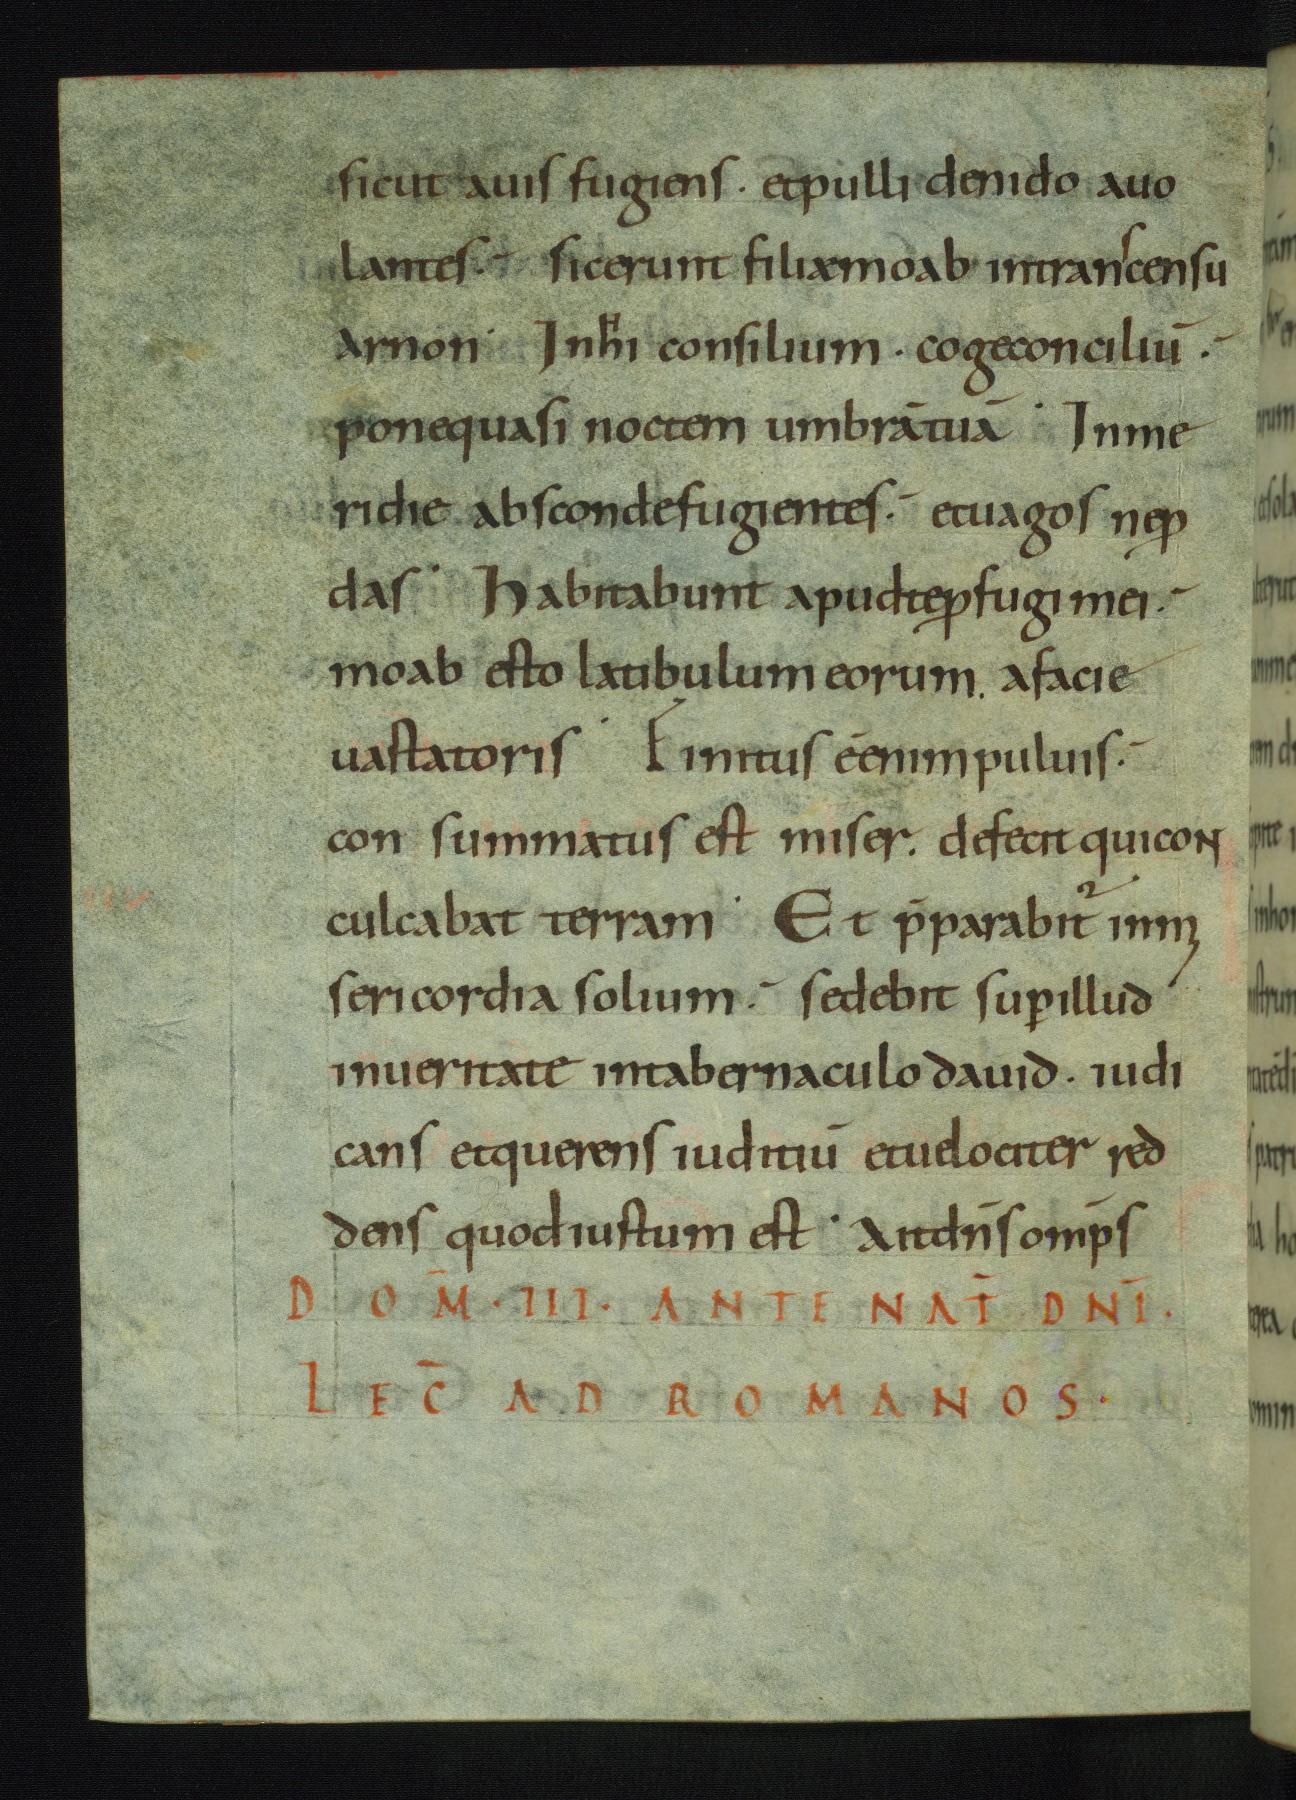 sicut auis fugiens · et pulli de nido auo
lantes · sic erunt filiæ moab in transcensu
arnon · Inhi consilium · coge conciliū ·
pone quasi noctem umbrā tuā · In me
ridie absconde fugientes · et uagos ne ꝓ
das · Habitabunt apud te ꝓfugi mei ·
moab esto latibulum eorum · a facie
uastatoris · Finitus ē enim puluis ·
con summatus est miser · defecit qui con
culcabat terram · Et p̄parabit᷑ in m
sericordia solium · sedebit suꝑ illud
in ueritate in tabernaculo dauid · iudi
cans et querens iuditiū et uelociter red
dens quod iustum est · Ait dn̄s omp̄s
DOM̄ · III · ANTE NAT̄ DNĪ ·
LEC̄ AD ROMANOS ·